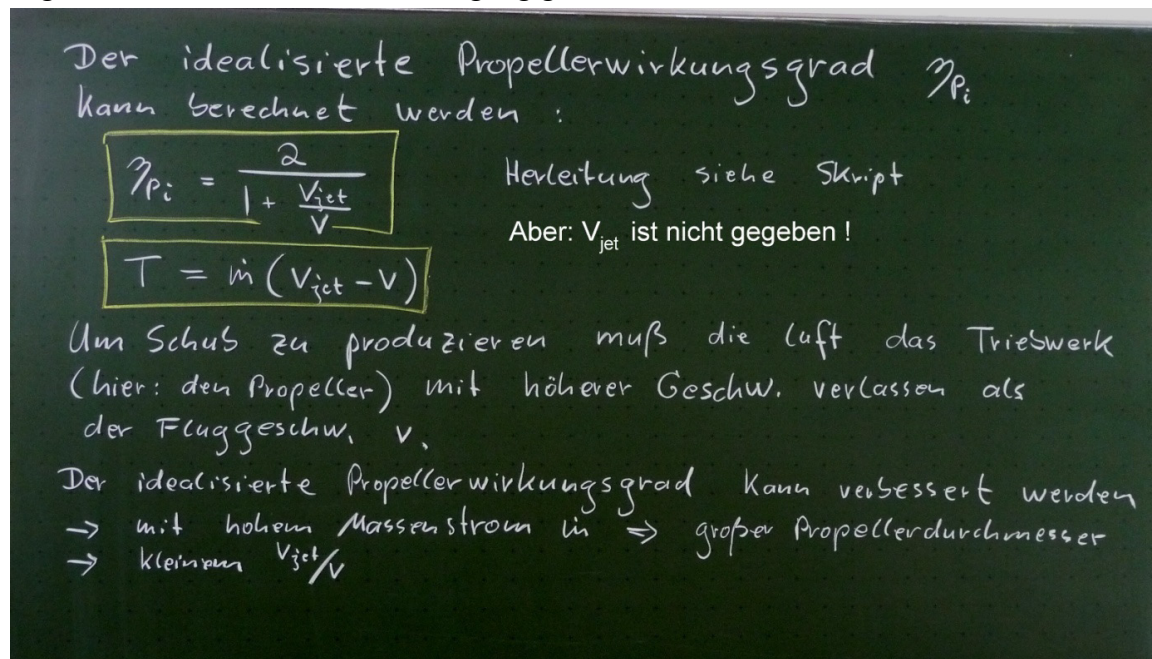 Der idealisierte Propellerwirkungsgrad ηPi
kann berechnet werden :
ηPi = 2 / (1 + Vjet/V)
Herleitung siehe Skript
Aber: Vjet ist nicht gegeben !
T = ṁ (Vjet - V)
Um Schub zu produzieren muß die Luft das Triebwerk
(hier: den Propeller) mit höherer Geschw. verlassen als
der Fluggeschw. V.
Der idealisierte Propellerwirkungsgrad kann verbessert werden
→ mit hohem Massenstrom ṁ ⇒ großer Propellerdurchmesser
→ kleinem Vjet/V